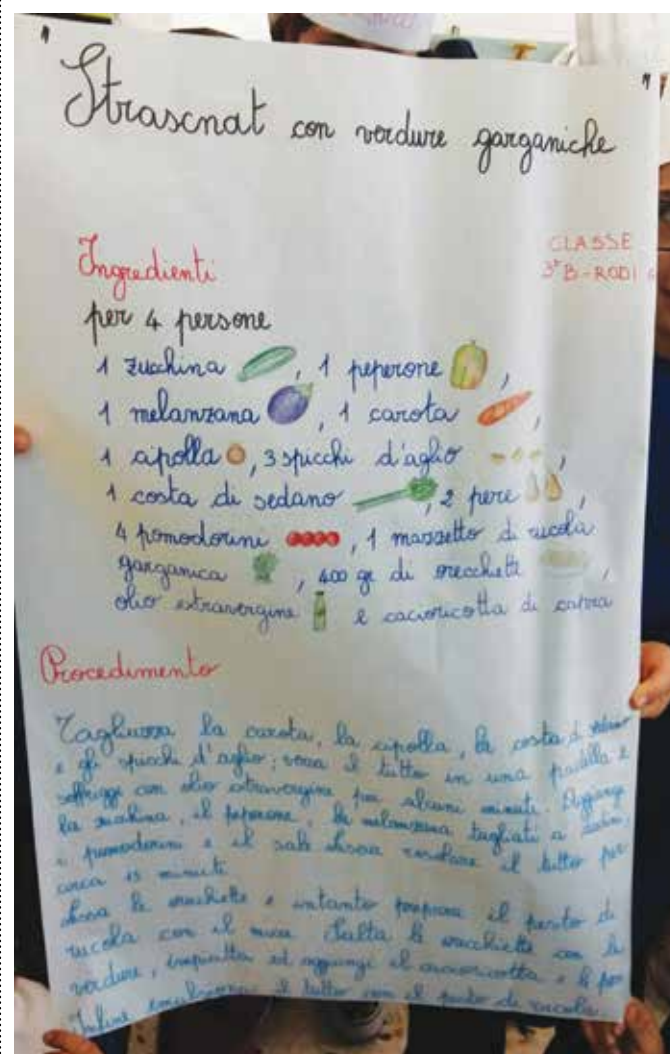 " Strascnat con verdure garganiche "
Ingredienti
CLASSE
3ªB - RODI G
per 4 persone
1 zucchina , 1 peperone ,
1 melanzana , 1 carota ,
1 cipolla , 3 spicchi d'aglio ,
1 costa di sedano , 2 pere ,
4 pomodorini , 1 mazzetto di rucola
garganica , 400 gr di orecchiette ,
olio extravergine e cacioricotta di capra
Procedimento
Tagliuzza la carota, la cipolla, la costa di sedano
e gli spicchi d'aglio; versa il tutto in una padella e
soffriggi con olio extravergine per alcuni minuti. Aggiungi
la zucchina, il peperone, la melanzana tagliati a dadini,
i pomodorini e il sale. Lascia rosolare il tutto per
circa 15 minuti.
Lessa le orecchiette e intanto prepara il pesto di
rucola con il mixer. Salta le orecchiette con le
verdure, impiatta ed aggiungi il cacioricotta e le pere
Infine il tutto con il pesto di rucola.